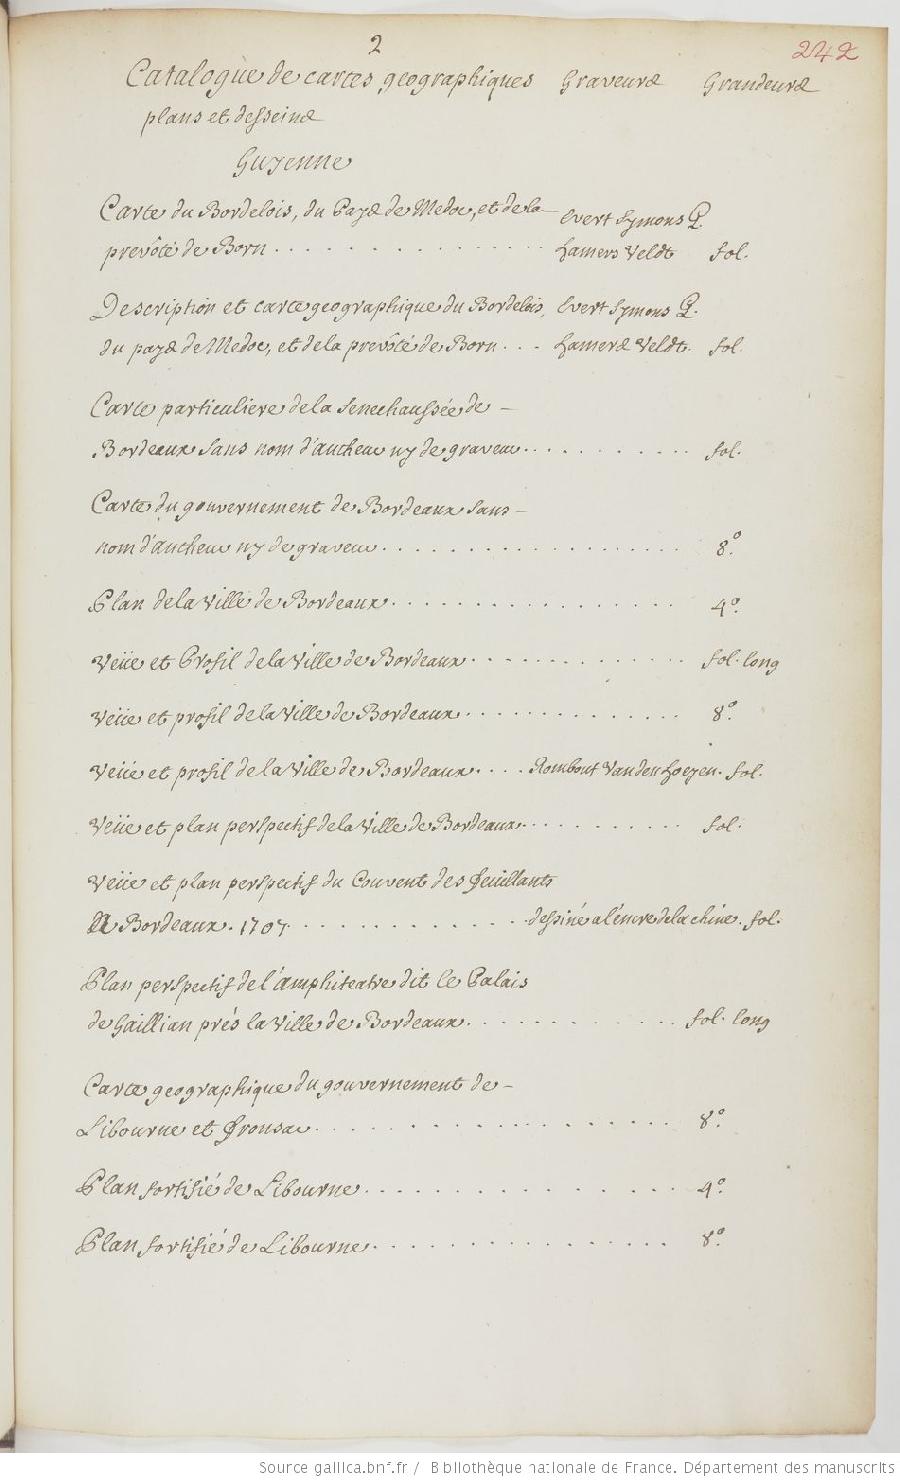 2
242
Catalogue de cartes geographiques Graveurs Grandeurs
plans et desseins
Guyenne
Carte du Bordelois, du Pays de Medoc, et de la Evert Symons
prevôté de Born . . . . . . . . . . . . . . . . Hamers Veldt fol.
Description et carte geographique du Bordelois, Evert Symons
du pays de Medoc, et de la prevôté de Born . . . Hamers Veldt. fol.
Carte particuliere de la senechaussée de –
Bordeaux sans nom d'autheur ny de graveur . . . . . . . . . . fol.
Carte du gouvernement de Bordeaux sans –
nom d'autheur ny de graveur . . . . . . . . . . . . . . . . . 8º.
Plan de la Ville de Bordeaux . . . . . . . . . . . . . . . . 4º.
Veüe et Profil de la Ville de Bordeaux . . . . . . . . . . . . fol. long
Veüe et profil de la Ville de Bordeaux . . . . . . . . . . . . 8º.
Veüe et profil de la Ville de Bordeaux . . . . Rombout Vanden Hoeyen. fol.
Veüe et plan perspectif de la Ville de Bordeaux . . . . . . . . . fol.
Veüe et plan perspectif du Couvent des Feuillants
A Bordeaux. 1707. . . . . . . . . . . . . . dessiné a l'encre de la chine. fol.
Plan perspectif de l'amphiteatre dit le Palais
de Gaillian prés la Ville de Bordeaux . . . . . . . . . . . . fol. long
Carte geographique du gouvernement de –
Libourne et Fronsac . . . . . . . . . . . . . . . . . . 8º.
Plan fortifié de Libourne . . . . . . . . . . . . . . . . . 4º.
Plan fortifié de Libourne . . . . . . . . . . . . . . . . . 8º.
Source gallica.bnf.fr / Bibliothèque nationale de France. Département des manuscrits